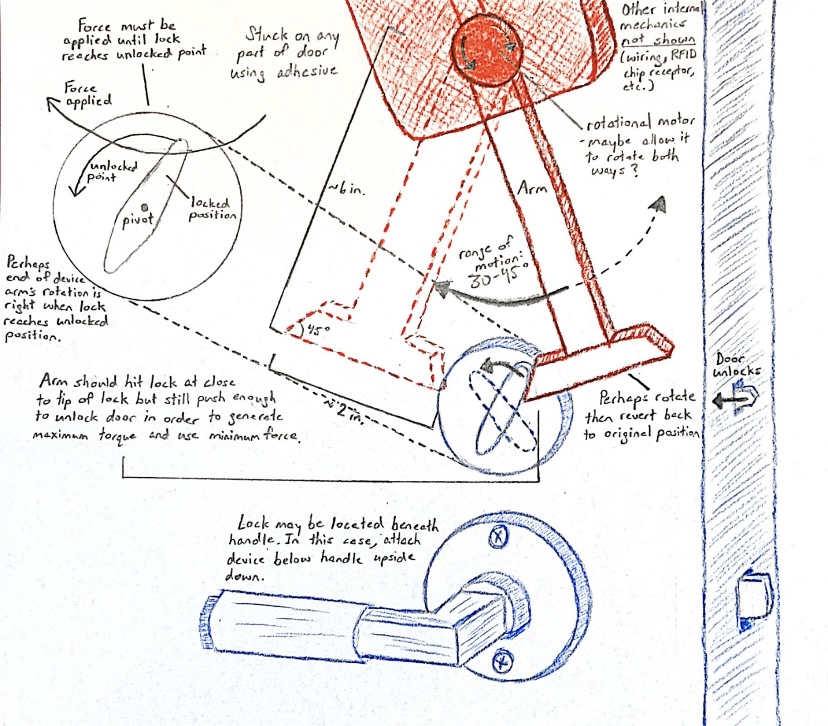 Force must be
applied until lock
reaches unlocked point.
Stuck on any
part of door
using adhesive
Other internal
mechanics
not shown
(wiring, RFID
chip receptor,
etc.)
Force
applied
rotational motor
-maybe allow it
to rotate both
ways?
unlocked
point
locked
position
pivot
~6 in.
Arm
range of
motion:
30-45°
Perhaps
end of device
arm's rotation is
right when lock
reaches unlocked
position.
45°
Door
unlocks
Arm should hit lock at close
to tip of lock but still push enough
to unlock door in order to generate
maximum torque and use minimum force.
~2 in.
Perhaps rotate
then revert back
to original position
Lock may be located beneath
handle. In this case, attach
device below handle upside
down.